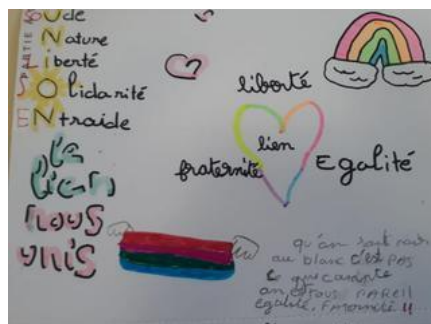 Nature
Liberté
Solidarité
Entraide
le
lien
nous
unis
liberté
lien
fraternité
Egalité
qu'on soit noir
au blanc c'est PAS
ce qui compte
on est tous PAREIL
égalité, Fraternité !!...